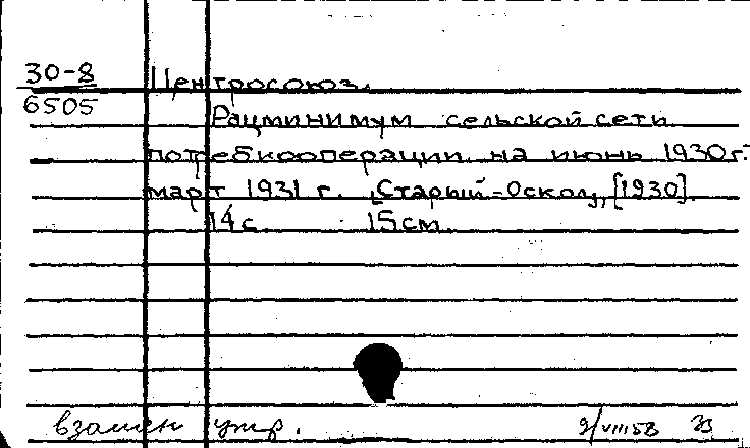 30-8
6505
Центросоюз.
Рацминимум сельской сети
потребкооперации на июнь 1930г.-
март 1931 г. „Старый-Оскол„, [1930].
14 с. 15 см.
взамен утр. 9/VIII 58